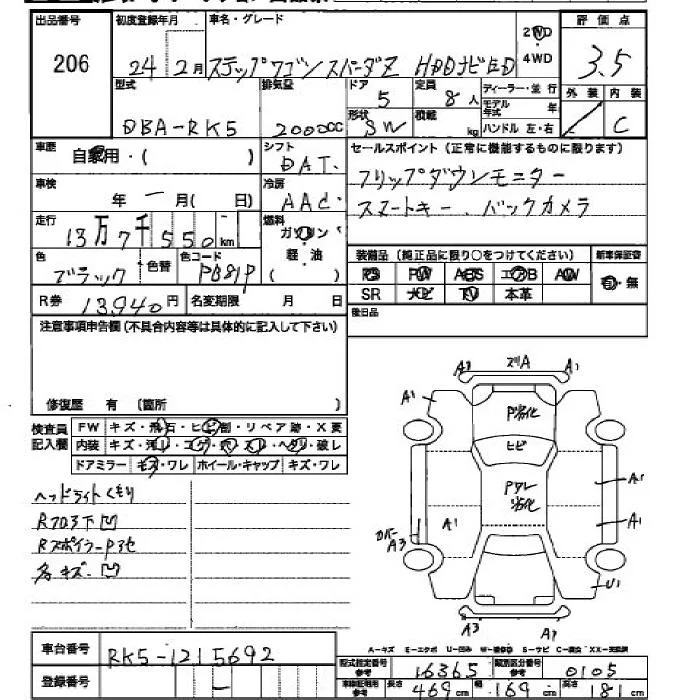 出品番号 初度登録年月 車名・グレード 2WD 評価点
206 24年2月 ステップワゴンスパーダZ HDDナビED 4WD 3.5
型式 排気量 ドア 定員 ディーラー・並行 外装 内装
DBA-RK5 2000cc 5 8人 モデル年式 年 C
形状 積載 kg ハンドル 左・右
SW
車歴 自家用・( ) シフト セールスポイント(正常に機能するものに限ります)
DAT. フリップダウンモニター
車検 年 一 月( 日) 冷房 スマートキー、バックカメラ
AAC.
走行 13万7千550km 燃料 ガソリン
軽・油 装備品(純正品に限り○をつけてください) 新車保証書
色 ブラック 色替 色コード PB81P ( ) PS PW ABS エアB AW 有・無
R券 13,940円 名変期限 月 日 SR ナビ TV 本革
注意事項申告欄(不具合内容等は具体的に記入して下さい) 後日品
修復歴 有 (箇所 )
検査員記入欄 FW キズ・飛石・ヒビ割・リペア跡・X要
内装 キズ・汚レ・コゲ・穴・スレ・ヘタリ・破レ
ドアミラー キズ・ワレ ホイール・キャップ キズ・ワレ
ヘッドライトくもり
Rフロア下凹
Rスポイラー P3セ
各キズ・凹
A2 ズリA A1
A1
P劣化
ヒビ
Pワレ
劣化
A1 A1
カバー A3 A1
U1
A3 A2
A-キズ E-エクボ U-凹み W-補修跡 S-サビ C-腐食 XX-交換済
車台番号 RK5-1215692
登録番号 -
型式指定番号 参考 16365 類別区分番号 参考 0105
車検証明用 参考 長さ 469cm 幅 169cm 高さ 181cm